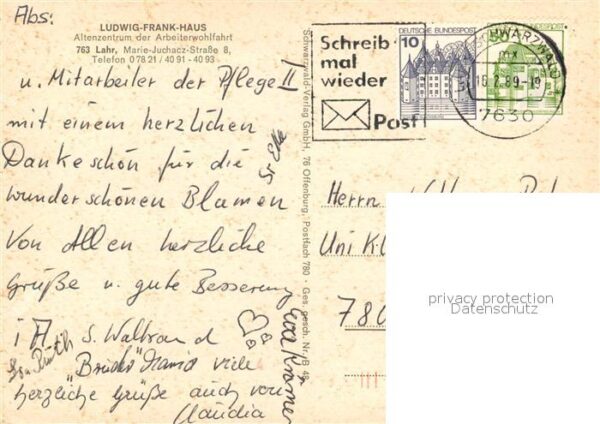 Abs:
LUDWIG-FRANK-HAUS
Altenzentrum der Arbeiterwohlfahrt
763 Lahr, Marie-Juchacz-Straße 8,
Telefon 0 78 21 / 40 91 - 40 93
u. Mitarbeiter der Pflege II
mit einem herzlichen
Dankeschön für die
wunderschönen Blumen
Von Allen herzliche
Grüße u. gute Besserung
i A. S. Waltraud
Sr. Ruth
"Bruder" viele
herzliche Grüße auch von
Claudia
Sr Elke
Eva
Schwarzwald-Verlag GmbH, 76 Offenburg, Postfach 780 · Ges. gesch. Nr./B 48
Schreib
mal
wieder
Post
10 DEUTSCHE BUNDESPOST
SCHWARZWALD
mx
16.2.89-19
7630
Herrn
Uni Kl
780
privacy protection
Datenschutz